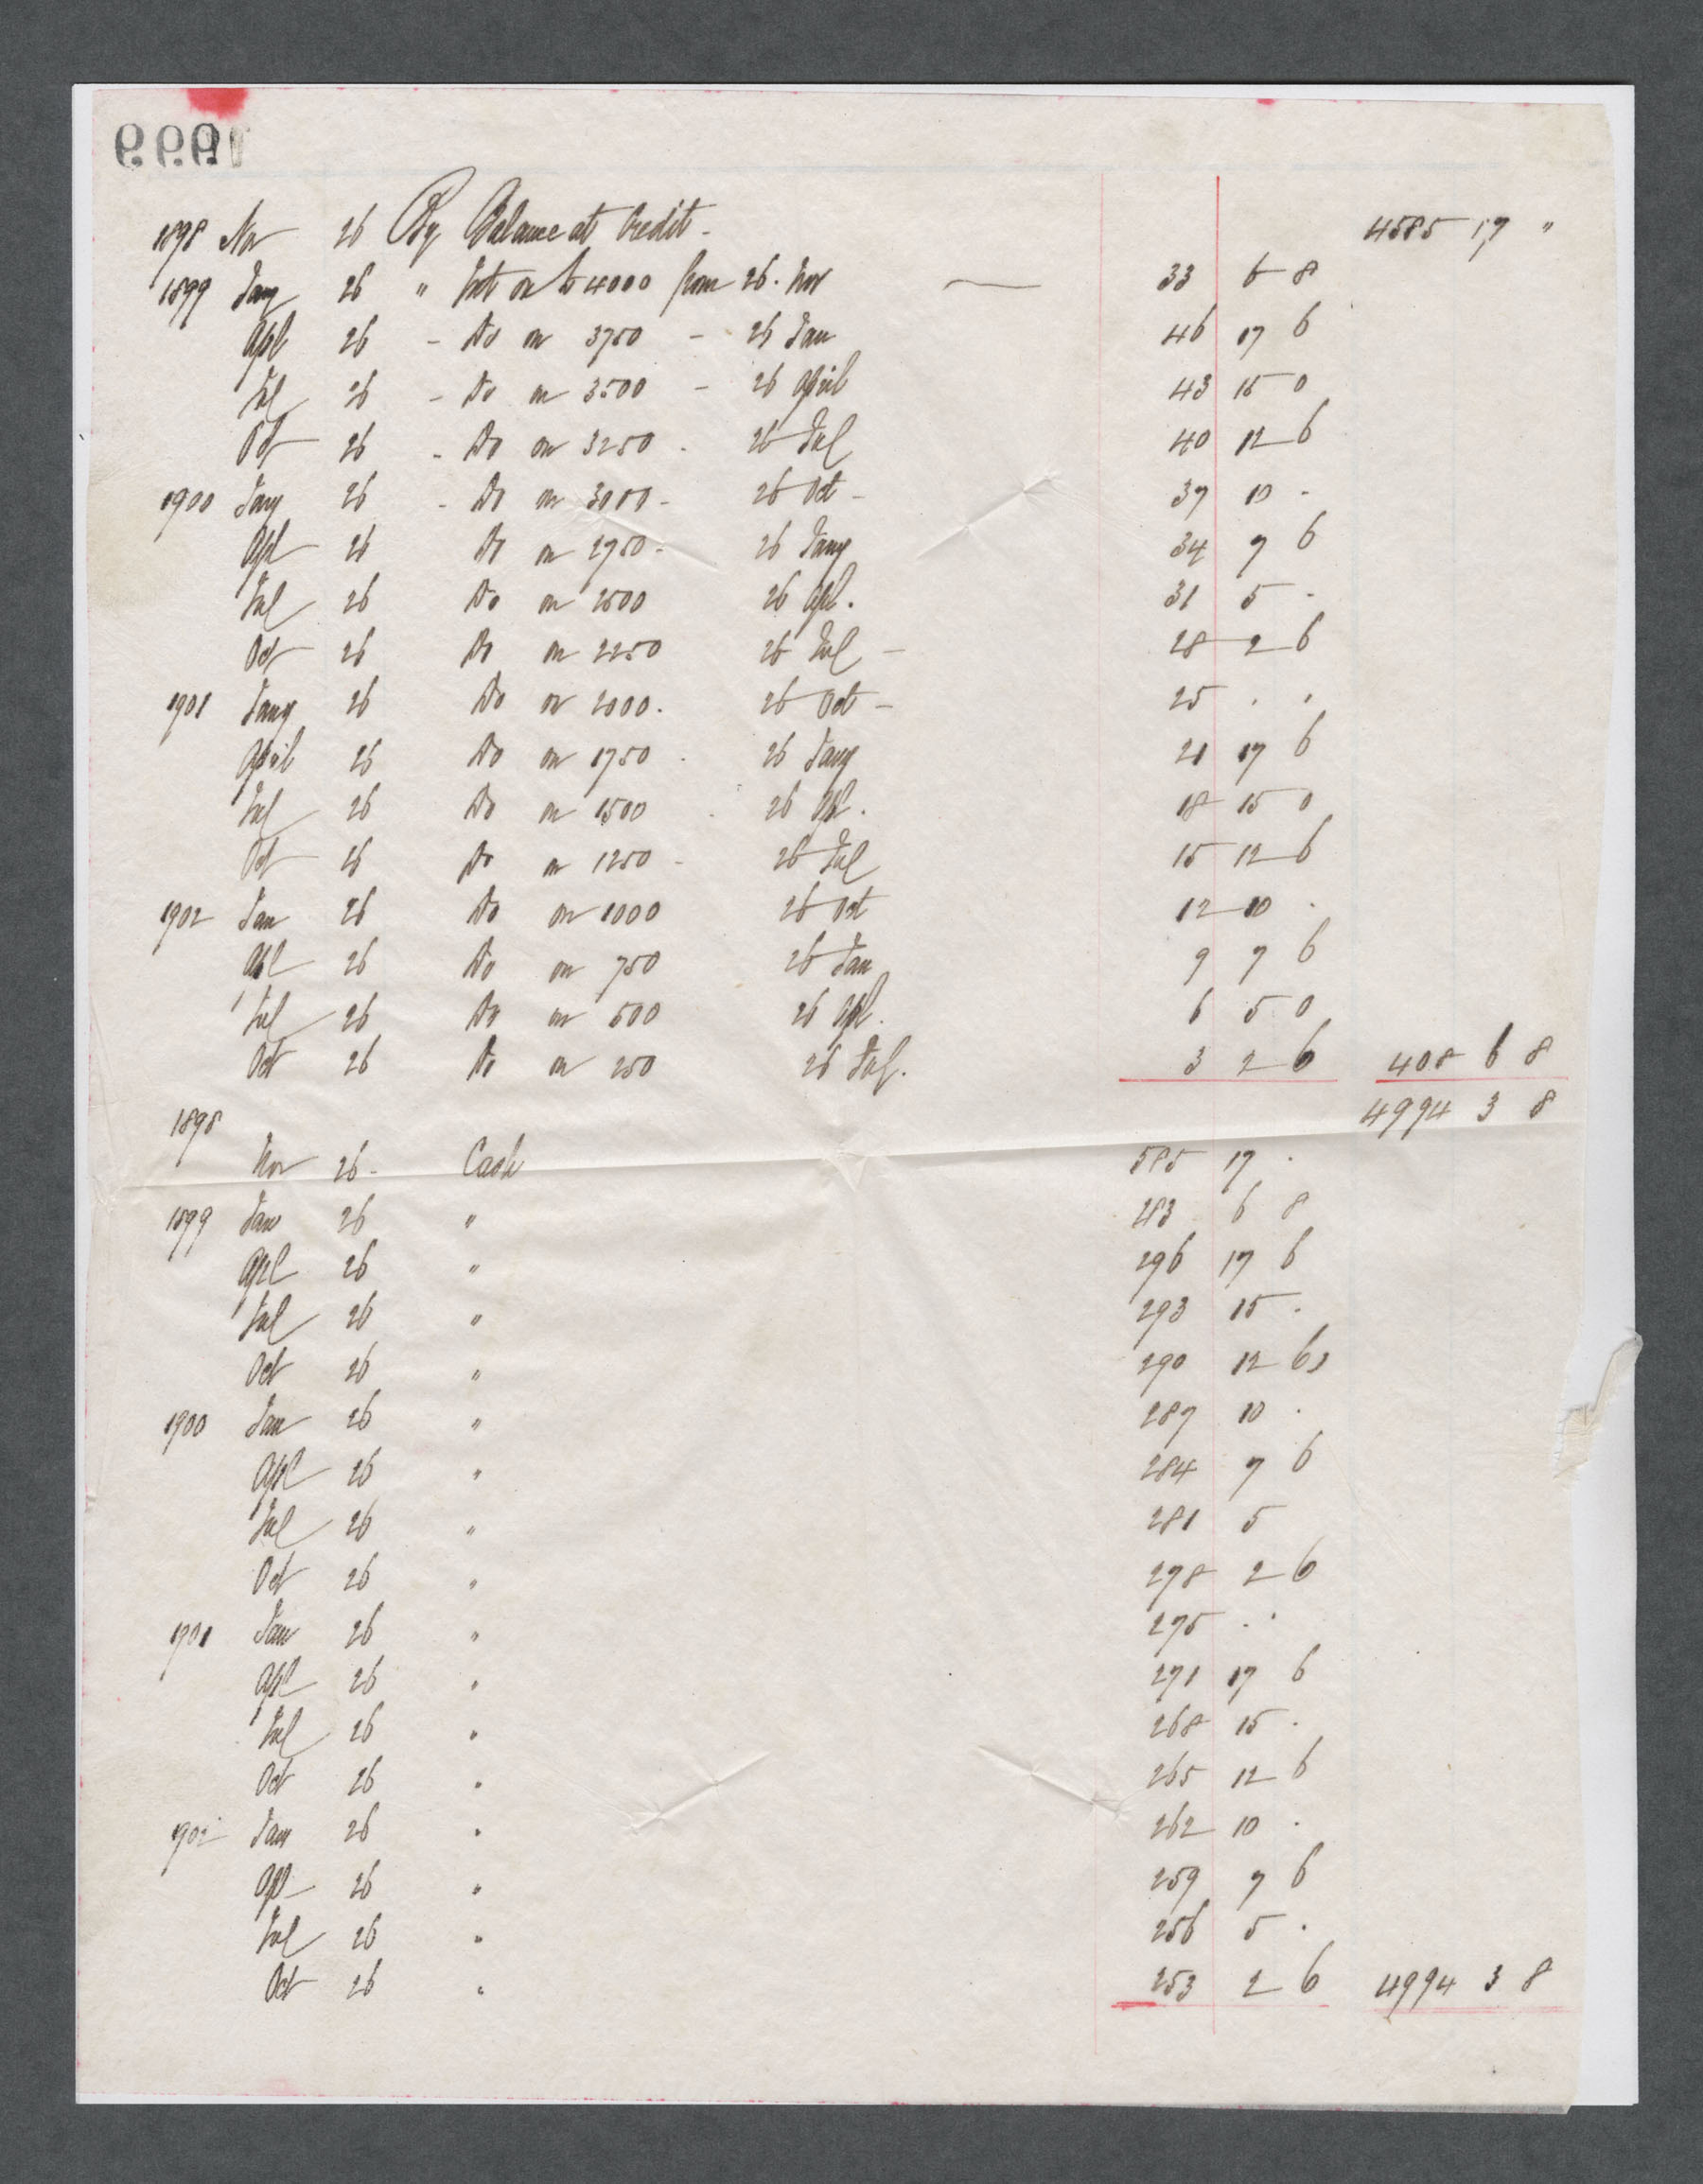 1898 Nov 26 By Balance at Credit - 4585 17 "
1899 Jany 26 " Int on £4000 from 26. Nov 33 6 8
Apl 26 - Do on 3750 - 26 Jan 46 17 6
Jul 26 - Do on 3500 - 26 April 43 15 0
Oct 26 - Do on 3250 - 26 Jul 40 12 6
1900 Jany 26 - Do on 3000 - 26 Oct - 37 10 -
Apl 26 Do on 2750 - 26 Jany 34 7 6
Jul 26 Do on 2500 26 Apl. 31 5 -
Oct 26 Do on 2250 26 Jul - 28 2 6
1901 Jany 26 Do on 2000. 26 Oct - 25 . .
April 26 Do on 1750 - 26 Jany 21 17 6
Jul 26 Do on 1500 . 26 Apl. 18 15 0
Oct 26 Do on 1250 - 26 Jul 15 12 6
1902 Jan 26 Do on 1000 26 Oct 12 10 .
Apl 26 Do on 750 26 Jan 9 7 6
Jul 26 Do on 500 26 Apl. 6 5 0
Oct 26 Do on 250 26 Jul. 3 2 6 408 6 8
4994 3 8
1898
Nov 26 - Cash 585 17 .
1899 Jan 26 " 283 6 8
Apl 26 " 296 17 6
Jul 26 " 293 15 .
Oct 26 " 290 12 6
1900 Jan 26 " 287 10 .
Apl 26 " 284 7 6
Jul 26 " 281 5
Oct 26 " 278 2 6
1901 Jan 26 " 275 . .
Apl 26 " 271 17 6
Jul 26 " 268 15 .
Oct 26 " 265 12 6
1902 Jan 26 " 262 10 .
Apl 26 " 259 7 6
Jul 26 " 256 5 .
Oct 26 " 253 2 6 4994 3 8